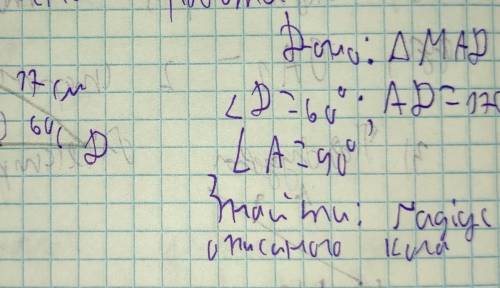 Дано: △ MAD
17 см
∠D=60°; AD=17
60
D
∠A=90°
Знайти: радіус
описаного кола